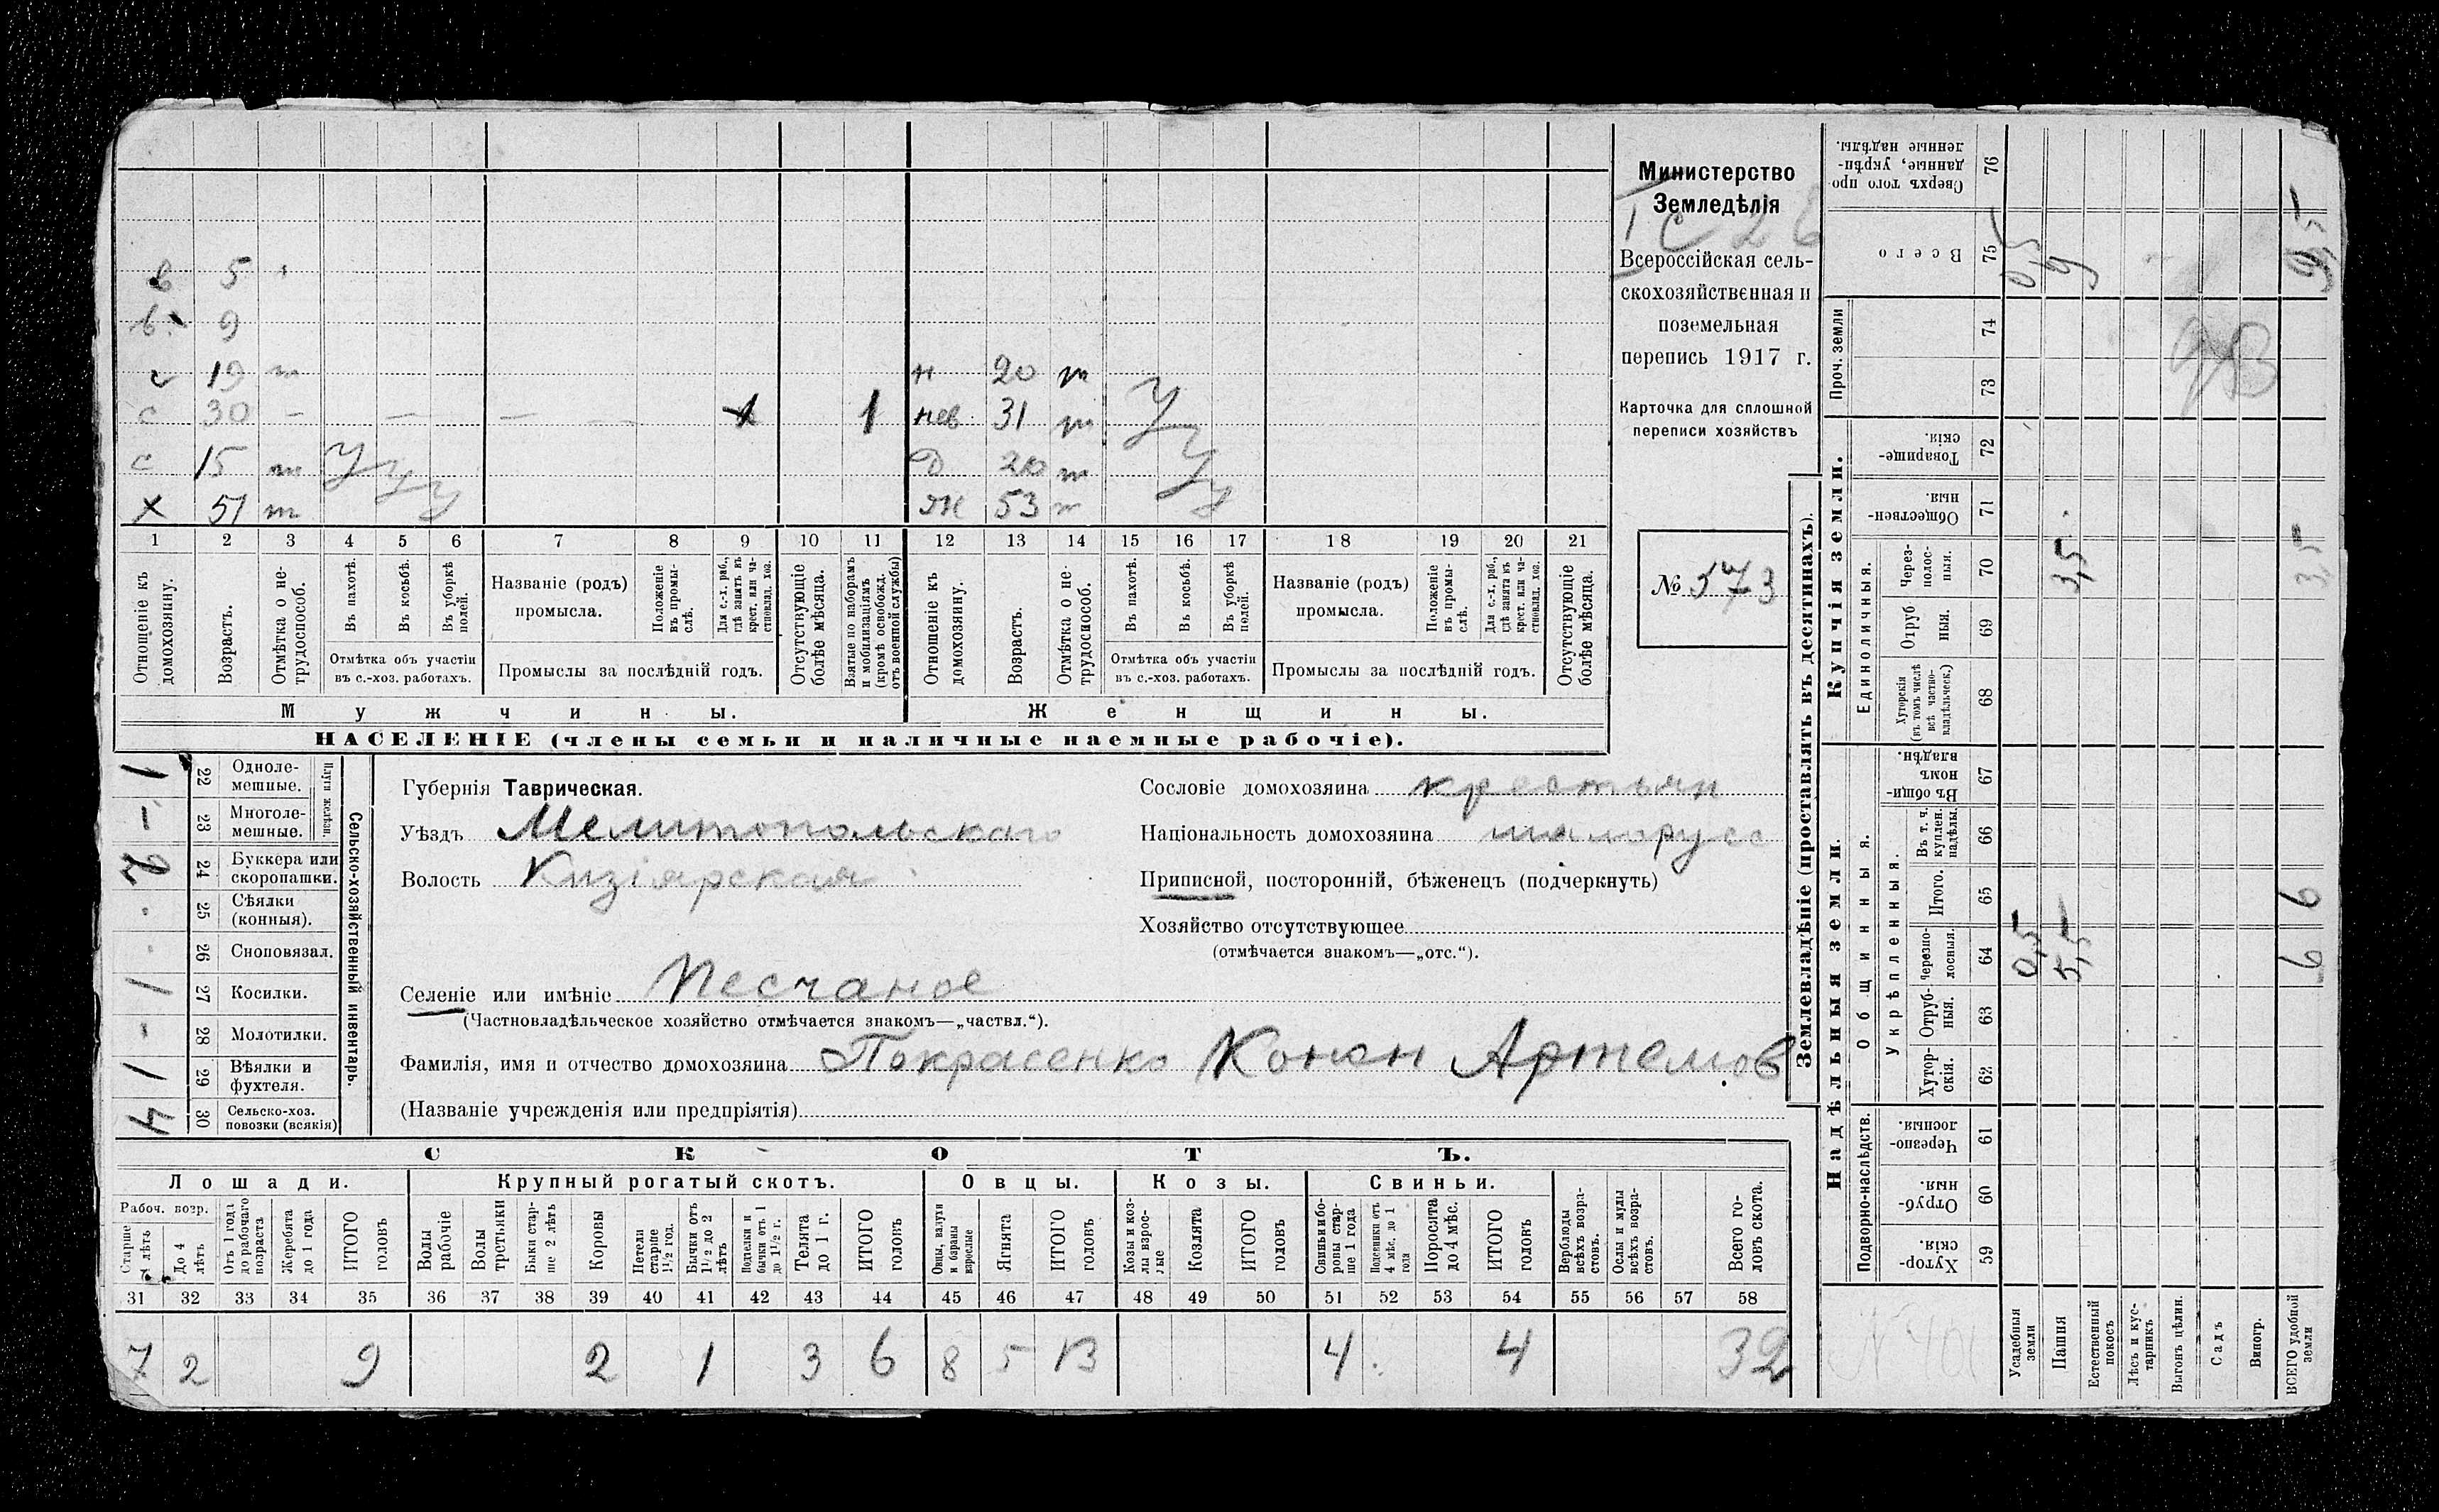 в 5
в. 9
с 19 т
н 20 т
с 30 — — — —
1
нев 31 т У
с 15 т У у у
Д 20 т У
х 51 т
Ж 53 т у
1 2 3 4 5 6 7 8 9 10 11 12 13 14 15 16 17 18 19 20 21
Отношеніе къ домохозяину.
Возрастъ.
Отмѣтка о не-трудоспособ.
Въ пахотѣ.
Въ косьбѣ.
Въ уборкѣ полей.
Отмѣтка объ участіи
въ с.-хоз. работахъ.
Названіе (родъ)
промысла.
Положеніе въ промы-слѣ.
Для с.-х. раб., гдѣ занятъ въ крест. или ча-стновлад. хоз.
Промыслы за послѣдній годъ.
Отсутствующіе болѣе мѣсяца.
Взятые по наборамъ и мобилизаціямъ (кромѣ освобожд. отъ военной службы)
Отношеніе къ домохозяину.
Возрастъ.
Отмѣтка о не-трудоспособ.
Въ пахотѣ.
Въ косьбѣ.
Въ уборкѣ полей.
Отмѣтка объ участіи
въ с.-хоз. работахъ.
Названіе (родъ)
промысла.
Положеніе въ промы-слѣ.
Для с.-х. раб., гдѣ занята въ крест. или ча-стновлад. хоз.
Промыслы за послѣдній годъ.
Отсутствующіе болѣе мѣсяца.
Мужчины.
Женщины.
НАСЕЛЕНІЕ (члены семьи и наличные наемные рабочіе).
Министерство
Земледѣлія
Всероссійская сель-
скохозяйственная и
поземельная
перепись 1917 г.
Карточка для сплошной
переписи хозяйствъ
№ 573
Сельско-хозяйственный инвентарь.
Плуги желѣзн.
1 22 Одноле-мешные.
- 23 Многоле-мешные.
2 24 Буккера или скоропашки.
. 25 Сѣялки (конныя).
. 26 Сноповязал.
1 27 Косилки.
- 28 Молотилки.
1 29 Вѣялки и фухтеля.
4 30 Сельско-хоз. повозки (всякія)
Губернія Таврическая.
Уѣздъ Мелитопольскаго
Волость Кизіярская
Сословіе домохозяина крестьян
Національность домохозяина малорусс
Приписной, посторонній, бѣженецъ (подчеркнуть)
Хозяйство отсутствующее
(отмѣчается знакомъ—„отс.“).
Селеніе или имѣніе Песчаное
(Частновладѣльческое хозяйство отмѣчается знакомъ—„частвл.“).
Фамилія, имя и отчество домохозяина Покрасенко Конон Артемов
(Названіе учрежденія или предпріятія)
СКОТЪ.
Лошади.
Крупный рогатый скотъ.
Овцы.
Козы.
Свиньи.
Рабоч. возр.
Старше 4 лѣтъ
До 4 лѣтъ
Отъ 1 года до рабочаго возраста
Жеребята до 1 года
ИТОГО головъ
Волы рабочіе
Волы третьяки
Быки стар-ше 2 лѣтъ
Коровы
Нетели старше 1½ год.
Бычки отъ 1½ до 2 лѣтъ
Подтелки и бычки отъ 1 до 1½ г.
Телята до 1 г.
ИТОГО головъ
Овцы, валухи и бараны взрослые
Ягнята
ИТОГО головъ
Козы и коз-лы взрос-лые
Козлята
ИТОГО головъ
Свиньи и бо-ровы стар-ше 1 года
Подсвинки отъ 4 мѣс. до 1 года
Поросята до 4 мѣс.
ИТОГО головъ
Верблюды всѣхъ возра-стовъ.
Ослы и мулы всѣхъ возра-стовъ.
Всего го-ловъ скота.
31 32 33 34 35 36 37 38 39 40 41 42 43 44 45 46 47 48 49 50 51 52 53 54 55 56 57 58
7 2 9 2 1 3 6 8 5 13 4 4 32
Землевладѣніе (проставлять въ десятинахъ).
Надѣльныя земли.
Купчія земли.
Проч. земли
Подворно-наслѣдств.
Общинныя.
Укрѣпленныя.
Единоличныя.
Сверхъ того про-данные, укрѣп-ленные надѣлы. 76
Всего 75 0,5 9 9,5
74
73
Товарище-скія. 72
Обществен-ныя. 71
Через-полос-ныя. 70 3,5 3,5
Отруб ныя. 69
Хуторскія (въ томъ числѣ всѣ частно-владѣльческ.) 68
Въ общи-номъ владѣн. 67
Въ т. ч. куплен. надѣлы. 66
Итого. 65 6
Черезпо-лосныя. 64 0,5 5,5 6
Отруб-ныя. 63
Хутор-скія. 62
Черезпо-лосныя. 61
Отруб-ныя. 60
Хутор-скія. 59
Усадебныя земли
Пашня
Естественный покосъ
Лѣсъ и кус-тарникъ
Выгонъ цѣлин.
Садъ
Виногр.
ВСЕГО удобной земли